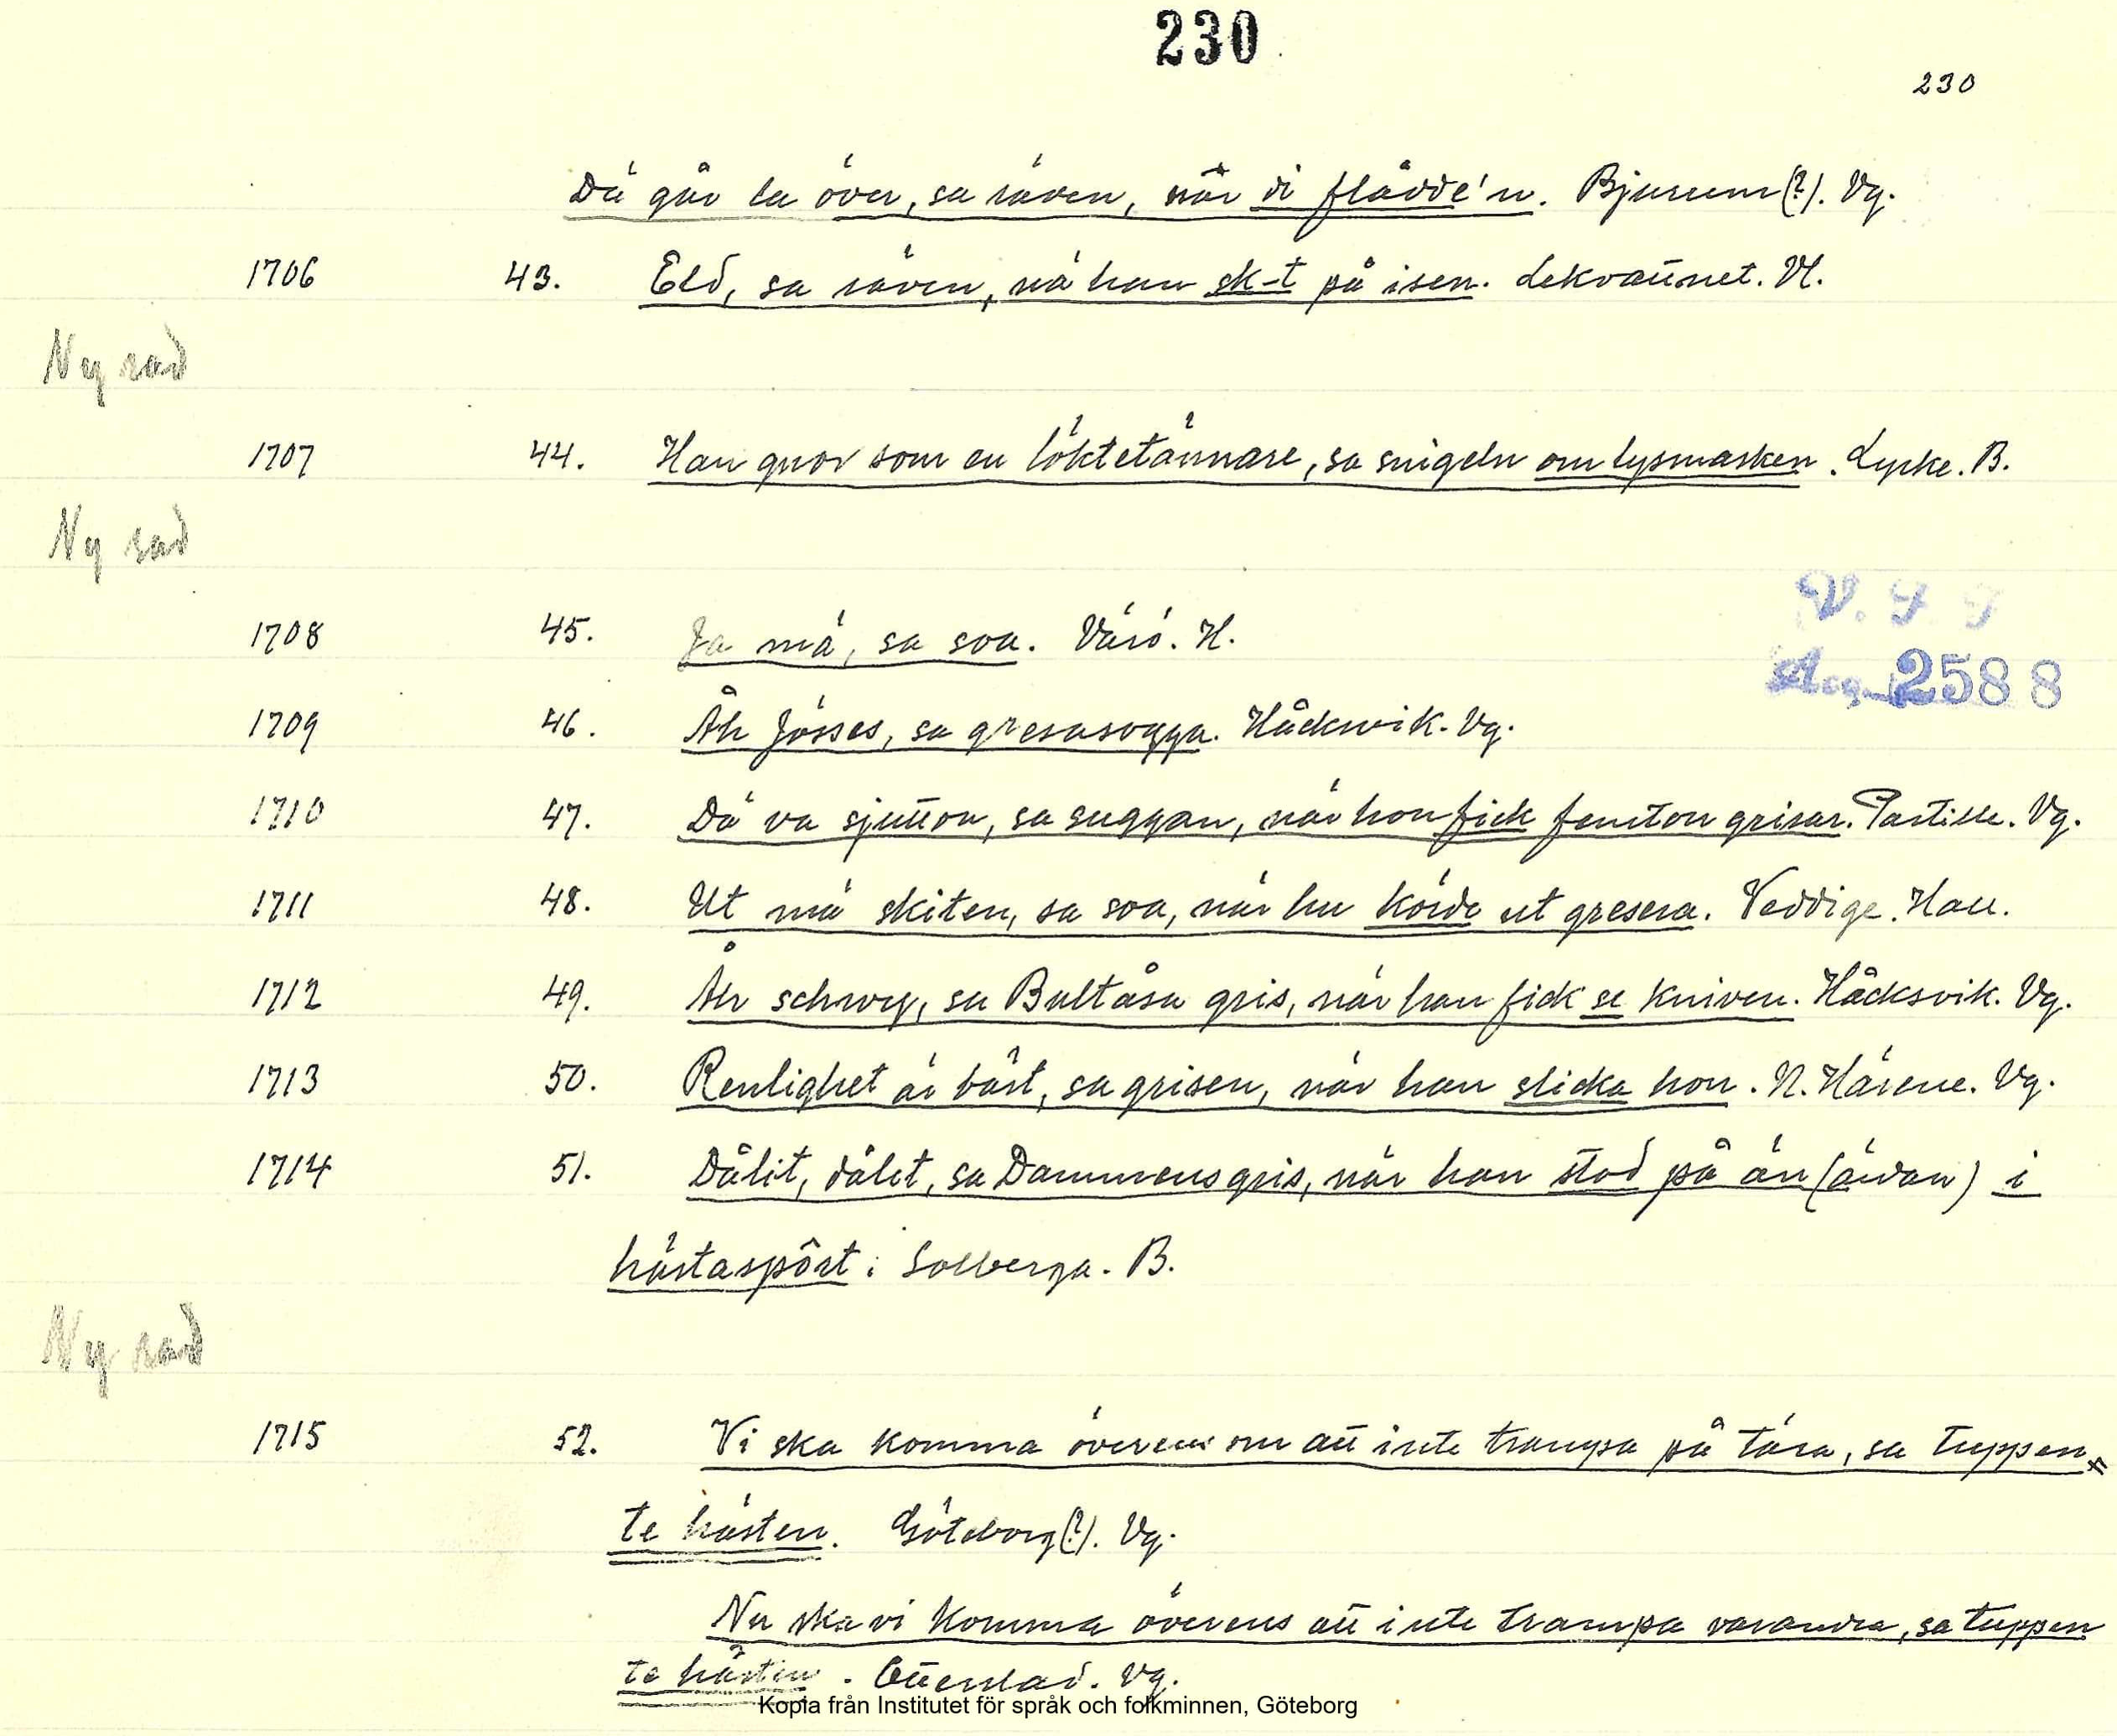 230
230
Dä går la över, sa räven, när di flådde'n. Bjurum(?). Vg.
1706 43. Eld, sa räven, nä han sk-t på isen. Lekvattnet. Vl.
Ny rad
1707 44. Han gnor som en löktetännare, sa snigeln om lysmasken. Lycke. B.
Ny rad
V. F. F.
1708 45. Ja mä, sa soa. Värö. H.
Acc. 2588
1709 46. Åh Jösses, sa gresasogga. Håcksvik. Vg.
1710 47. Dä va sjutton, sa suggan, när hon fick femton grisar. Partille. Vg.
1711 48. Ut mä skiten, sa soa, när hu körde ut gresera. Veddige. Hall.
1712 49. Åh schwey, sa Bultåsa gris, när han fick se kniven. Håcksvik. Vg.
1713 50. Renlighet är bäst, sa grisen, när han slicka hon. N. Härene. Vg.
1714 51. Dålit, dålet, sa Dammens gris, när han stod på än (ändan) i
hästaspôrt. Solberga. B.
Ny rad
1715 52. Vi ska komma överens om att inte trampa på tära, sa tuppen
te hästen. Göteborg(?). Vg.
Nu ska vi komma överens att inte trampa varandra, sa tuppen
te hästen. Otterstad. Vg.
Kopia från Institutet för språk och folkminnen, Göteborg